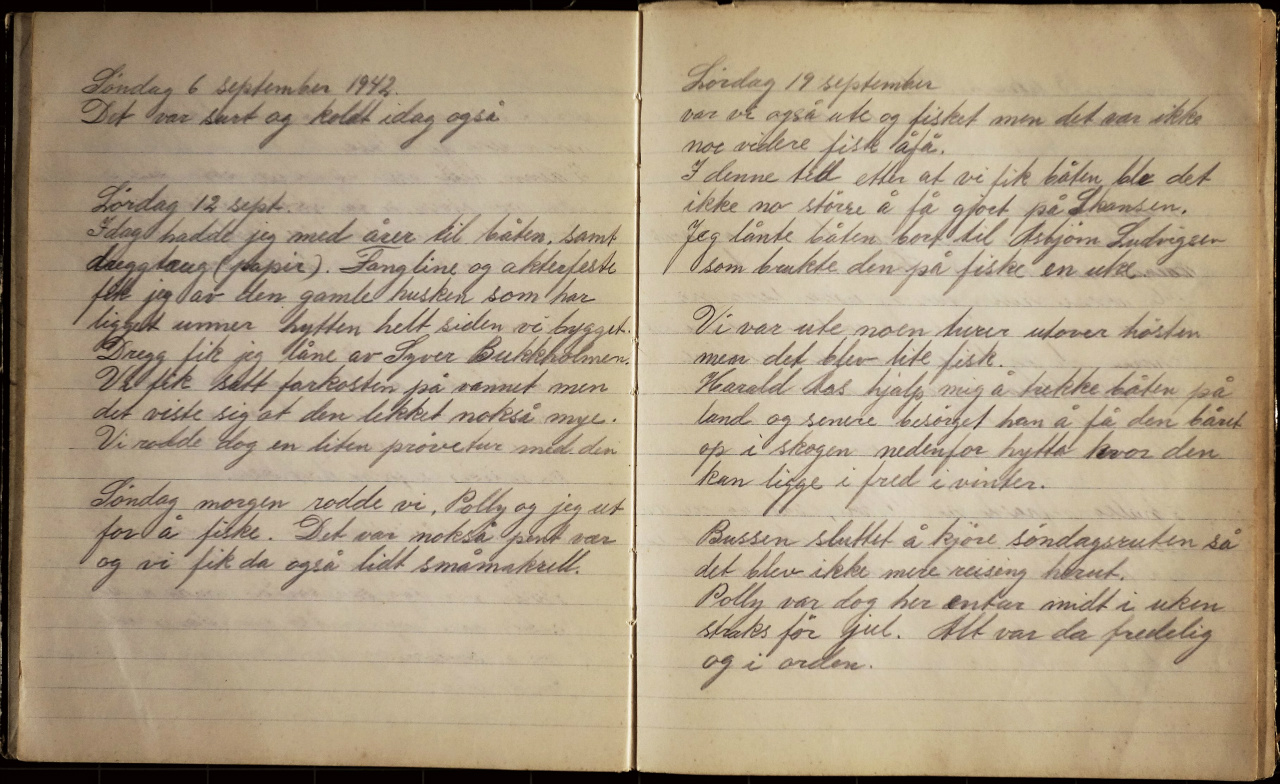 Søndag 6 september 1942.
Det var surt og koldt idag også
Lørdag 12 sept
Idag hadde jeg med årer til båten, samt
dræggtaug (papir). Fangline og akterfeste
fik jeg av den gamle husken som har
ligget unner hytten helt siden vi bygget.
Dregg fik jeg låne av Syver Bukkholmen.
Vi fik satt farkosten på vannet men
det viste sig at den lekket nokså mye.
Vi rodde dog en liten prøvetur med den
Søndag morgen rodde vi, Polly og jeg ut
for å fiske. Det var nokså pent vær
og vi fik da også lidt småmakrell.
Lørdag 19 september
var vi også ute og fisket men det var ikke
noe videre fisk åfå.
I denne tid etter at vi fik båten ble det
ikke no større å få gjoet på Skansen.
Jeg lånte båten bort til Asbjørn Ludvigsen
som brukte den på fiske en uke
Vi var ute noen turer utover hösten
men det blev lite fisk.
Harald Aas hjalp mig å trekke båten på
land og senere besörget han å få den båret
op i skogen nedenfor hytta hvor den
kan ligge i fred i vinter.
Bussen sluttet å kjöre söndagsruten så
det blev ikke mere reising herut.
Polly var dog her entur midt i uken
straks för jul. Alt var da fredelig
og i orden.